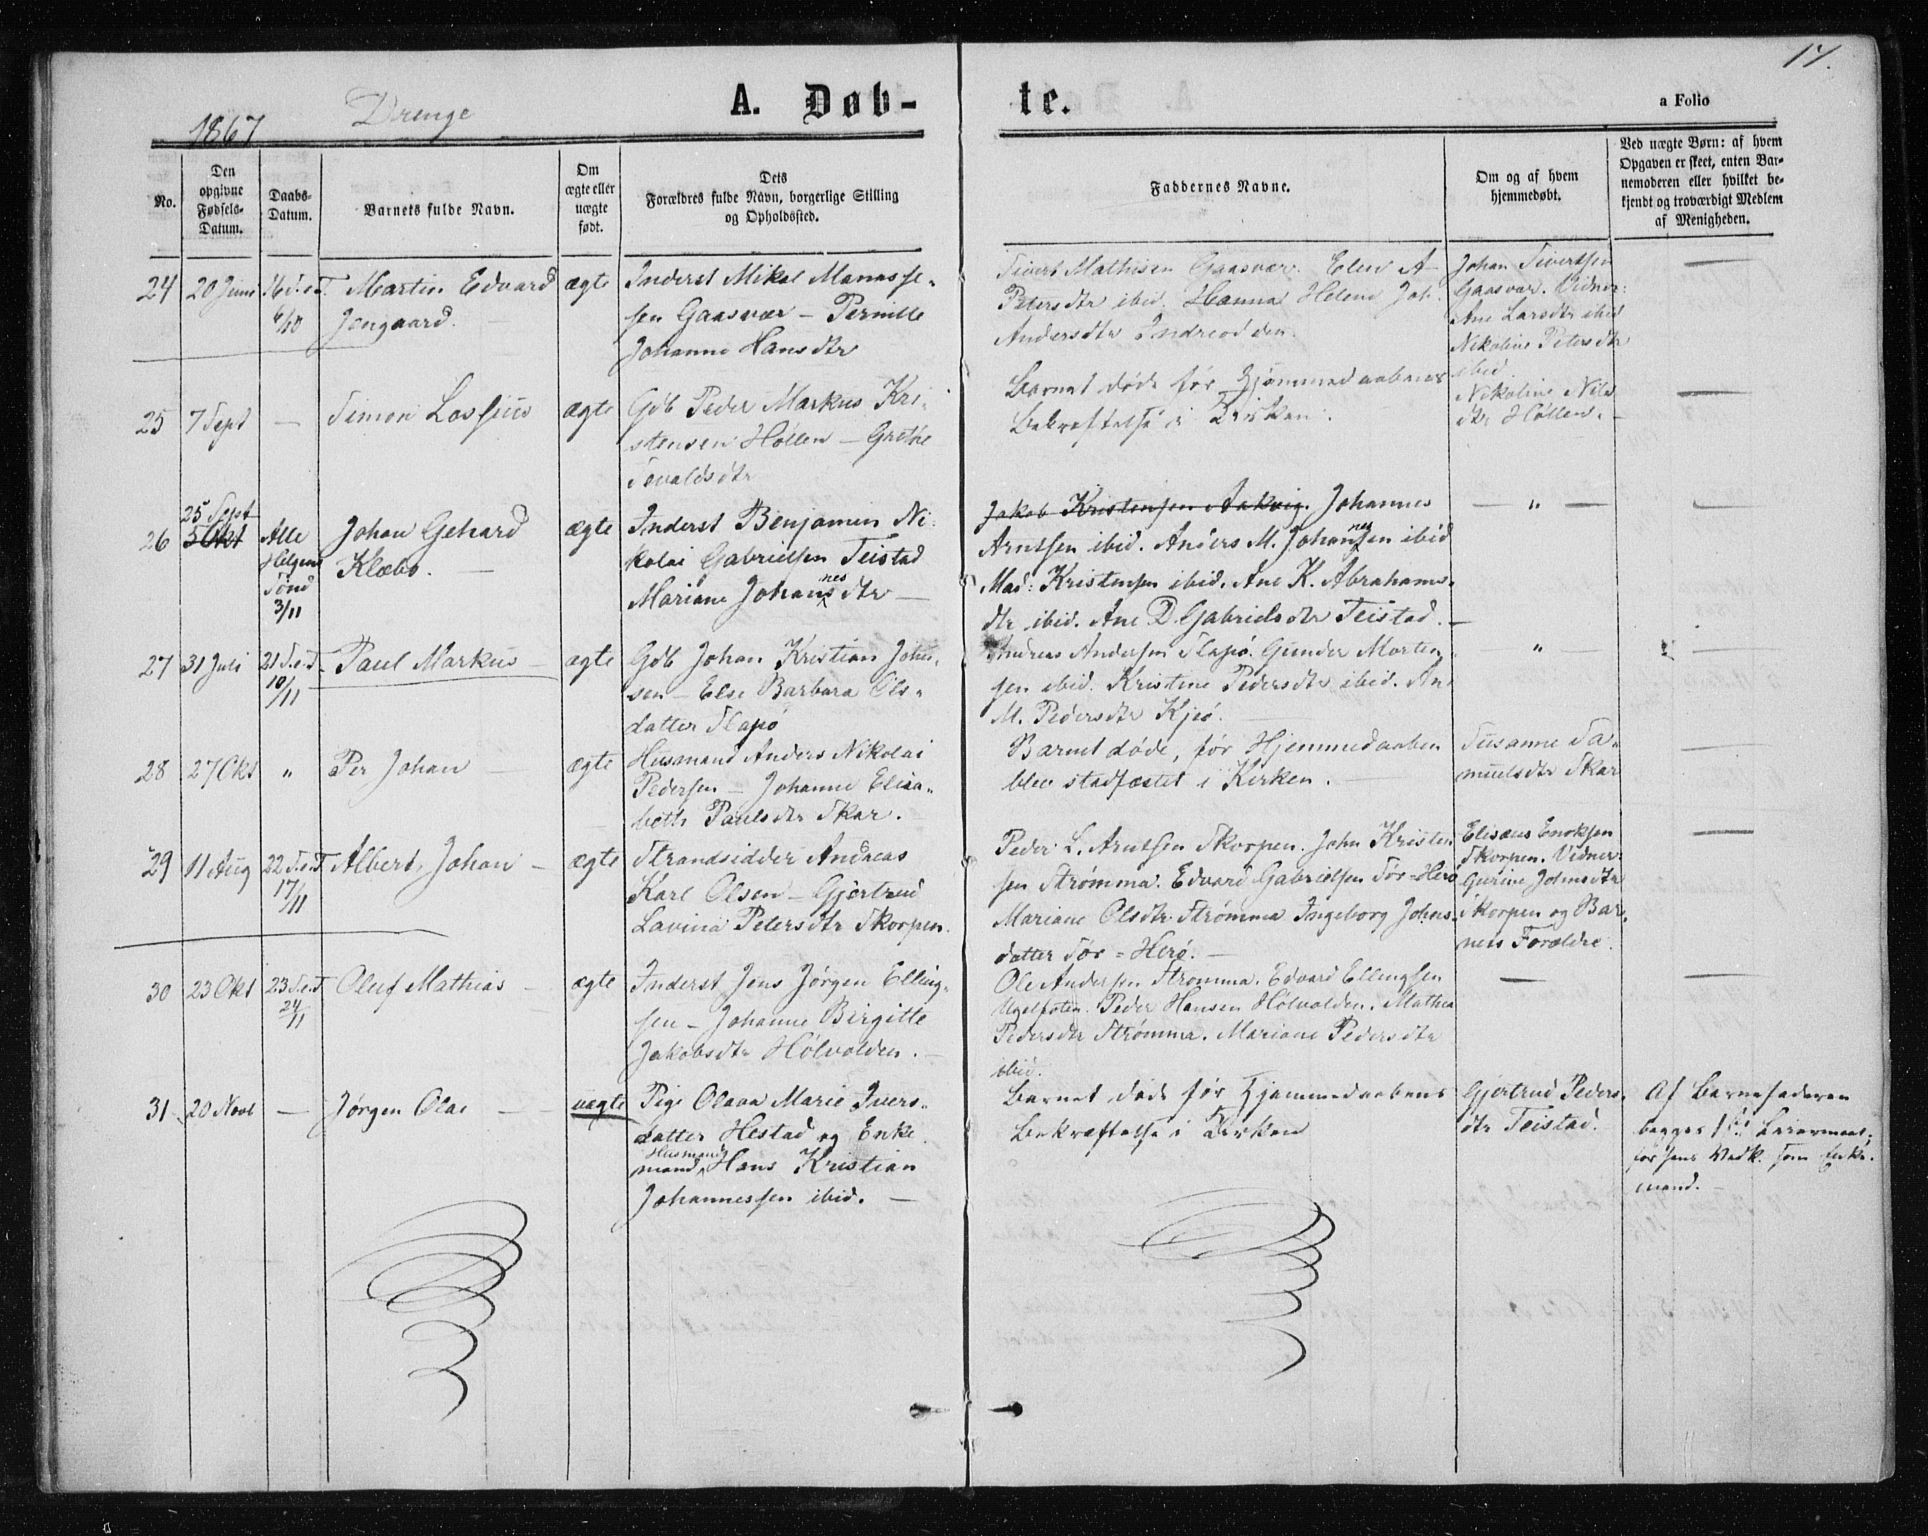 17.
1867 Drenge A. Døb- te. a Folio
No.
Den opgivne Fødsels-Datum.
Daabs-Datum.
Barnets fulde Navn.
Om ægte eller uægte født.
Dets Forældres fulde Navn, borgerlige Stilling og Opholdssted.
Faddernes Navne.
Om og af hvem hjemmedøbt.
Ved uægte Børn: af hvem Opgaven er skeet, enten Barnemoderen eller hvilket bekjendt og troværdigt Medlem af Menigheden.
24 20 Juni 16 S. e. T. 6/10
Martin Edvard
Jengaard.
ægte
Inderst Mikal Manasse-
sen Gaasvær – Pernille
Johanne Hansdtr
Sivert Mathisen Gaasvær. Elen A
Petersdtr ibid. Hanna Helene Joh.
Andersdtr Indreodden
Johan Sivertsen
Gaasvær. Vidner:
Ane Larsdtr ibid
Nikoline Petersdtr
ibid.
—
25 7 Sept —
Simon Lossius
ægte
Gdb Peder Markus Kri-
stensen Høllen – Grethe
Sevaldsdtr
Barnet døde før Hjemmedaabens
Bekræftelse i Kirken.
Nikoline Nils
dtr Høllen. –
—
26 25 Sept
5 Okt
Alle
Helgens
Sønd
3/11
Johan Gehard
Klæbo. —
ægte
Inderst Benjamin Ni-
kolai Gabrielsen Teistad
Mariane Johannesdtr –
Jakob Kristensen Aakvig. Johannes
Arntsen ibid. Anders M. Johannesen ibid
Mad: Kristensen ibid. Ane K. Abrahams-
dtr ibid. Ane D. Gabrielsdtr Teistad. –
— " —
—
27 31 Juli 21 S. e. T 10/11
Paul Markus –
ægte
Gdb Johan Kristian John-
sen – Else Barbara Ols-
datter Slapø
Andreas Andersen Slapø. Gunder Morten-
sen ibid. Kristine Pedersdtr ibid. An.
M. Pedersdtr Kjeø. —
"
—
28 27 Okt "
Per Johan –
ægte
Husmand Anders Nikolai
Pedersen – Johanne Elisa-
beth Paulsdtr Skar.
Barnet døde, før Hjemmedaaben
blev stadfæstet i Kirken. —
Susanne Sa-
muelsdtr Skar
—
29 11 Aug 22 S. e. T 17/11
Albert Johan –
ægte
Strandsidder Andreas
Karl Olsen – Gjertrud
Lavina Petersdtr Skorpen.
Peder L. Arntsen Skorpen. John Kristen
sen Strømma. Edvard Gabrielsen Sør=Herø
Mariane Olsdtr Strømma Ingeborg Johns-
datter Sør=Herø. –
Elisæus Enoksen
Skorpen. Vidner:
Gurine Johnsdtr
Skorpen og Bar-
nets Forældre.
—
30 23 Okt 23 S. e. T 24/11
Oluf Mathias –
ægte
Inderst Jens Jørgen Elling-
sen – Johanne Birgitte
Jakobsdtr Hølvolden. –
Ole Andersen Strømma. Edvard Ellingsen
Peder Hansen Hølvolden. Mathea
Pedersdtr Strømma. Mariane Pedersdtr
ibid.
—
—
31 20 Novb —
Jørgen Olai –
uægte
Pige Olava Marie Ivers-
datter Hestad og Enke
mand, Husmand Hans Kristian
Johannessen ibid. –
Barnet døde før Hjemmedaabens
Bekræftelse i Kirken
Gjertrud Peders-
dtr Teistad.
Af Barnefaderen
begges 1ste Leiermaal,
for hans Vedk. som Enke-
mand. –